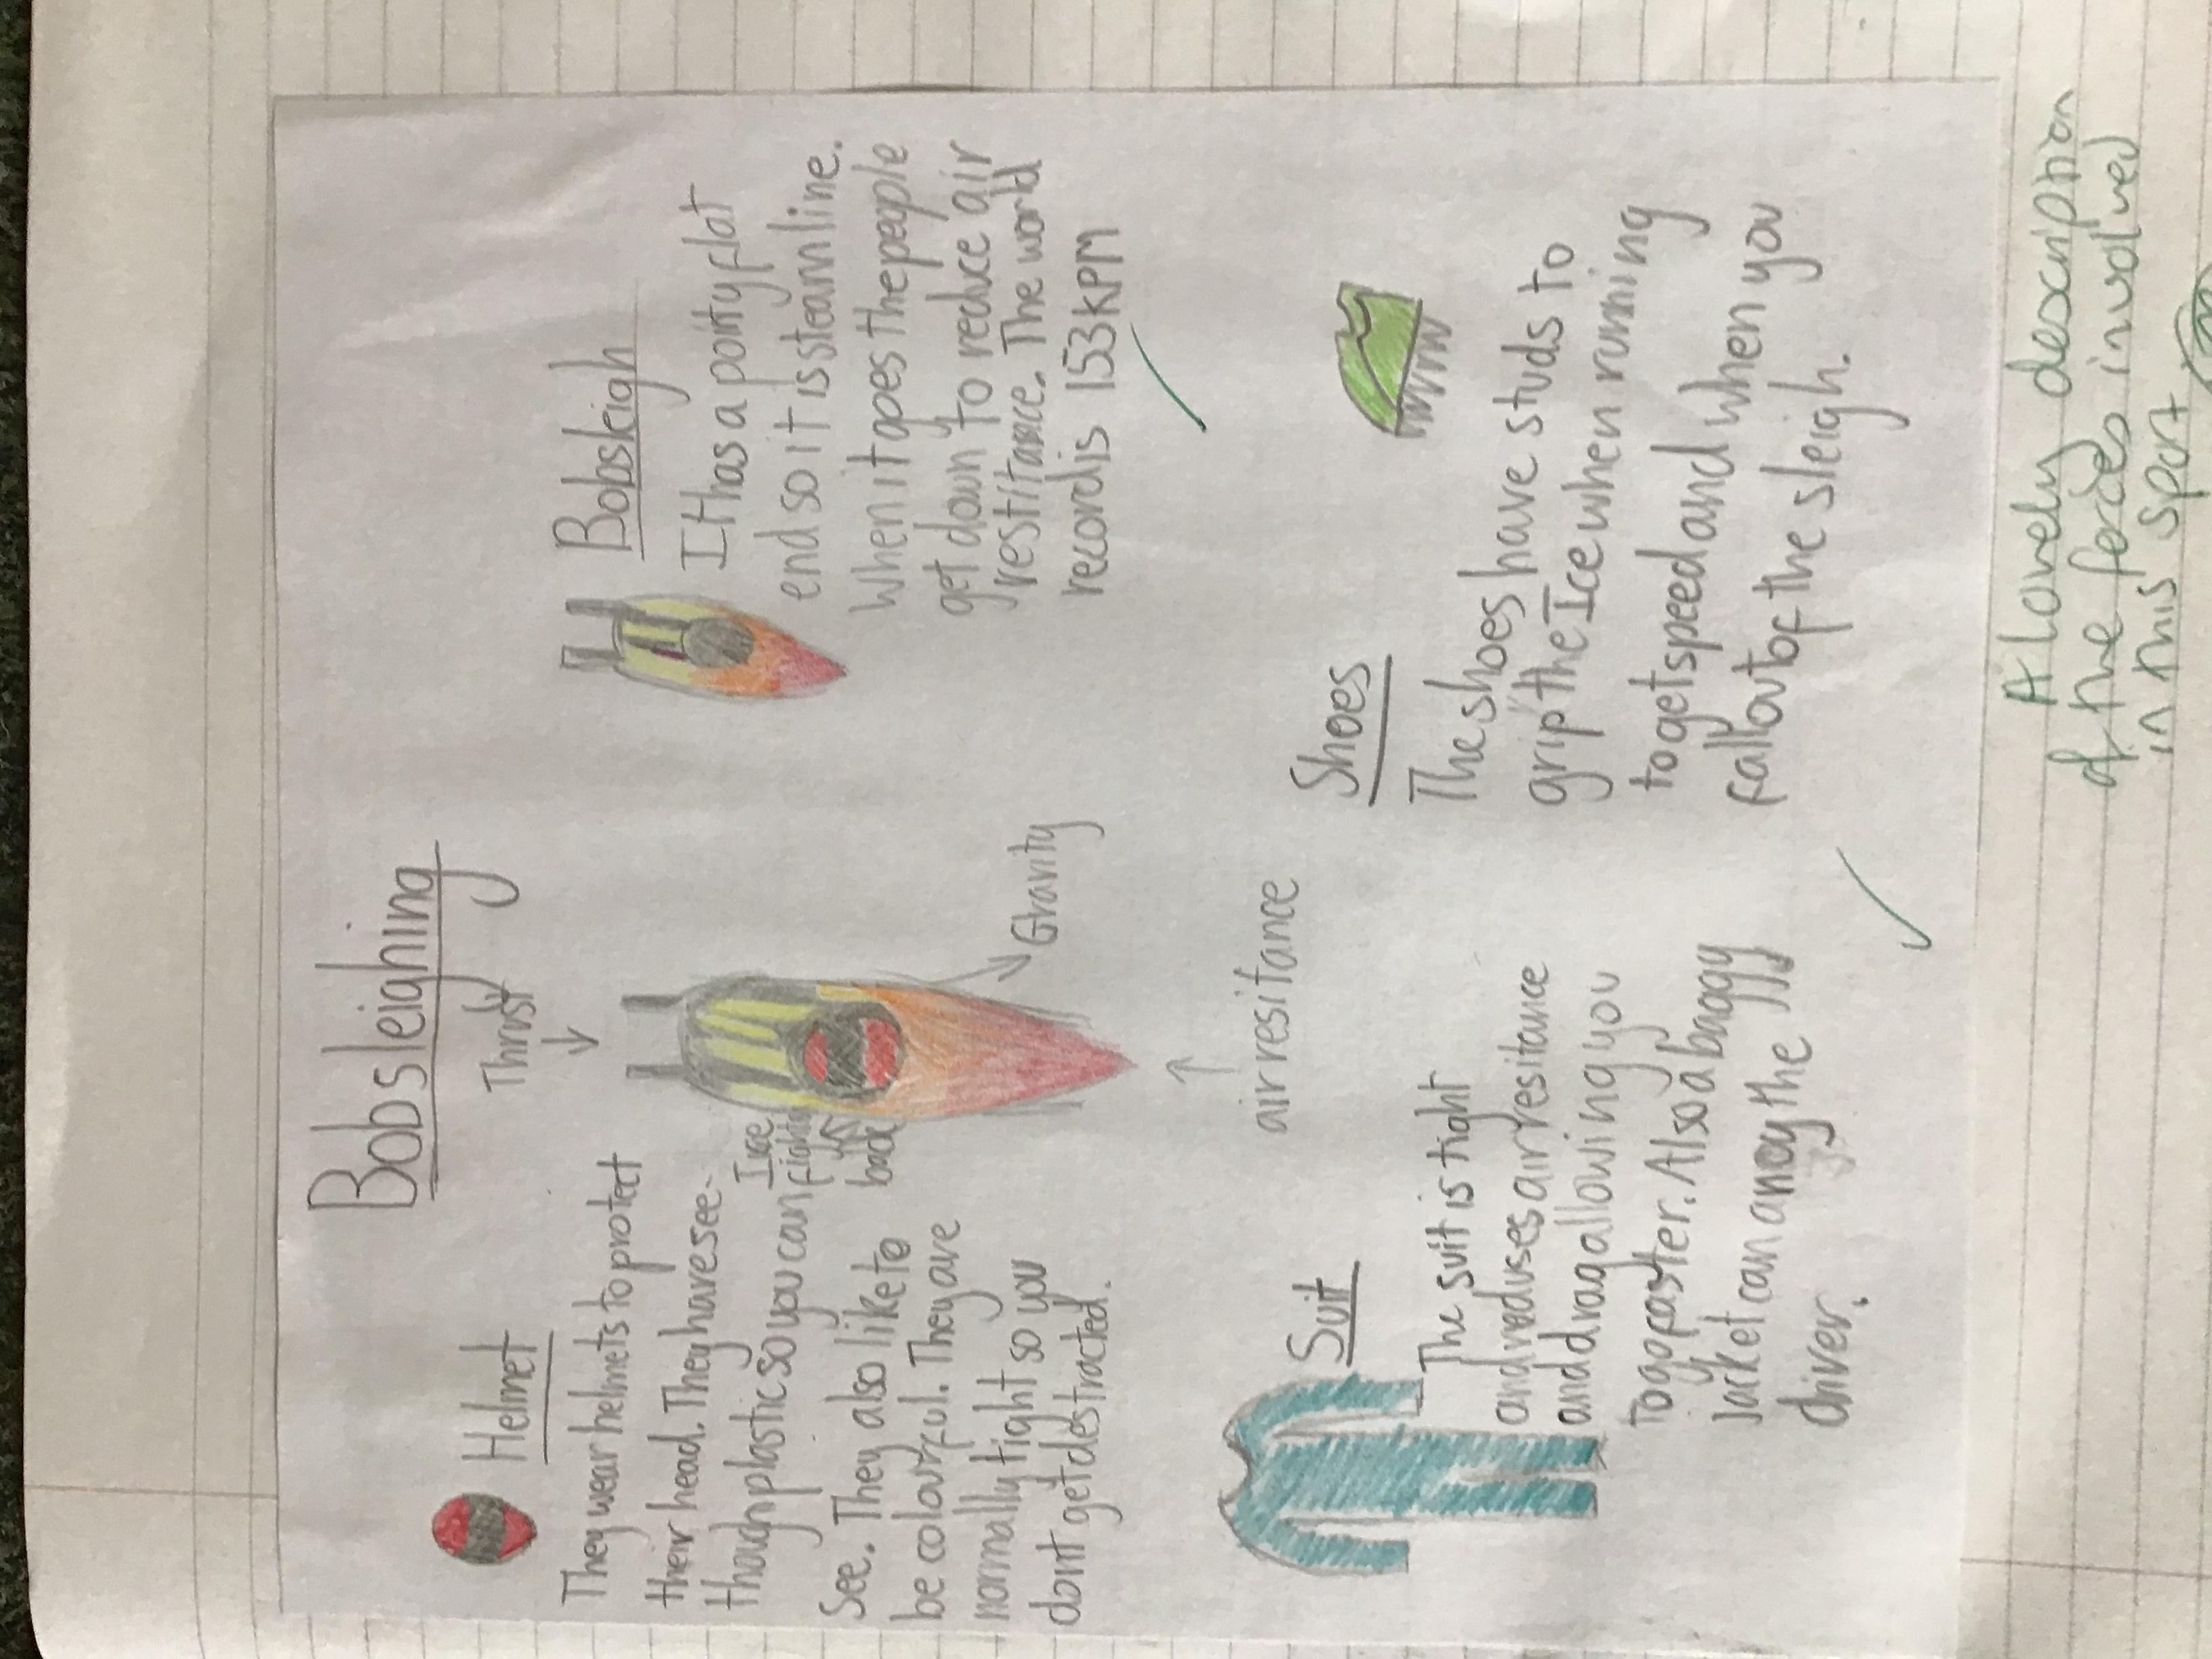 Bobsleighing
Thrust
Helmet
They wear helmets to protect
their head. They have see-
though plastic so you can
see. They also like to
be colourful. They are
normally tight so you
dont get destracted.
Ice
back
Gravity
air resitance
Bobsleigh
It has a pointy flat
end so it is steamline.
When it goes the people
get down to reduce air
restitance. The world
record is 153 KPM
Suit
The suit is tight
and reduses air resitance
and drag allowing you
to go faster. Also a baggy
jacket can anoy the
driver.
Shoes
The shoes have studs to
grip the Ice when running
to get speed and when you
fall out of the sleigh.
A lovely description
of the forces involved
in this sport